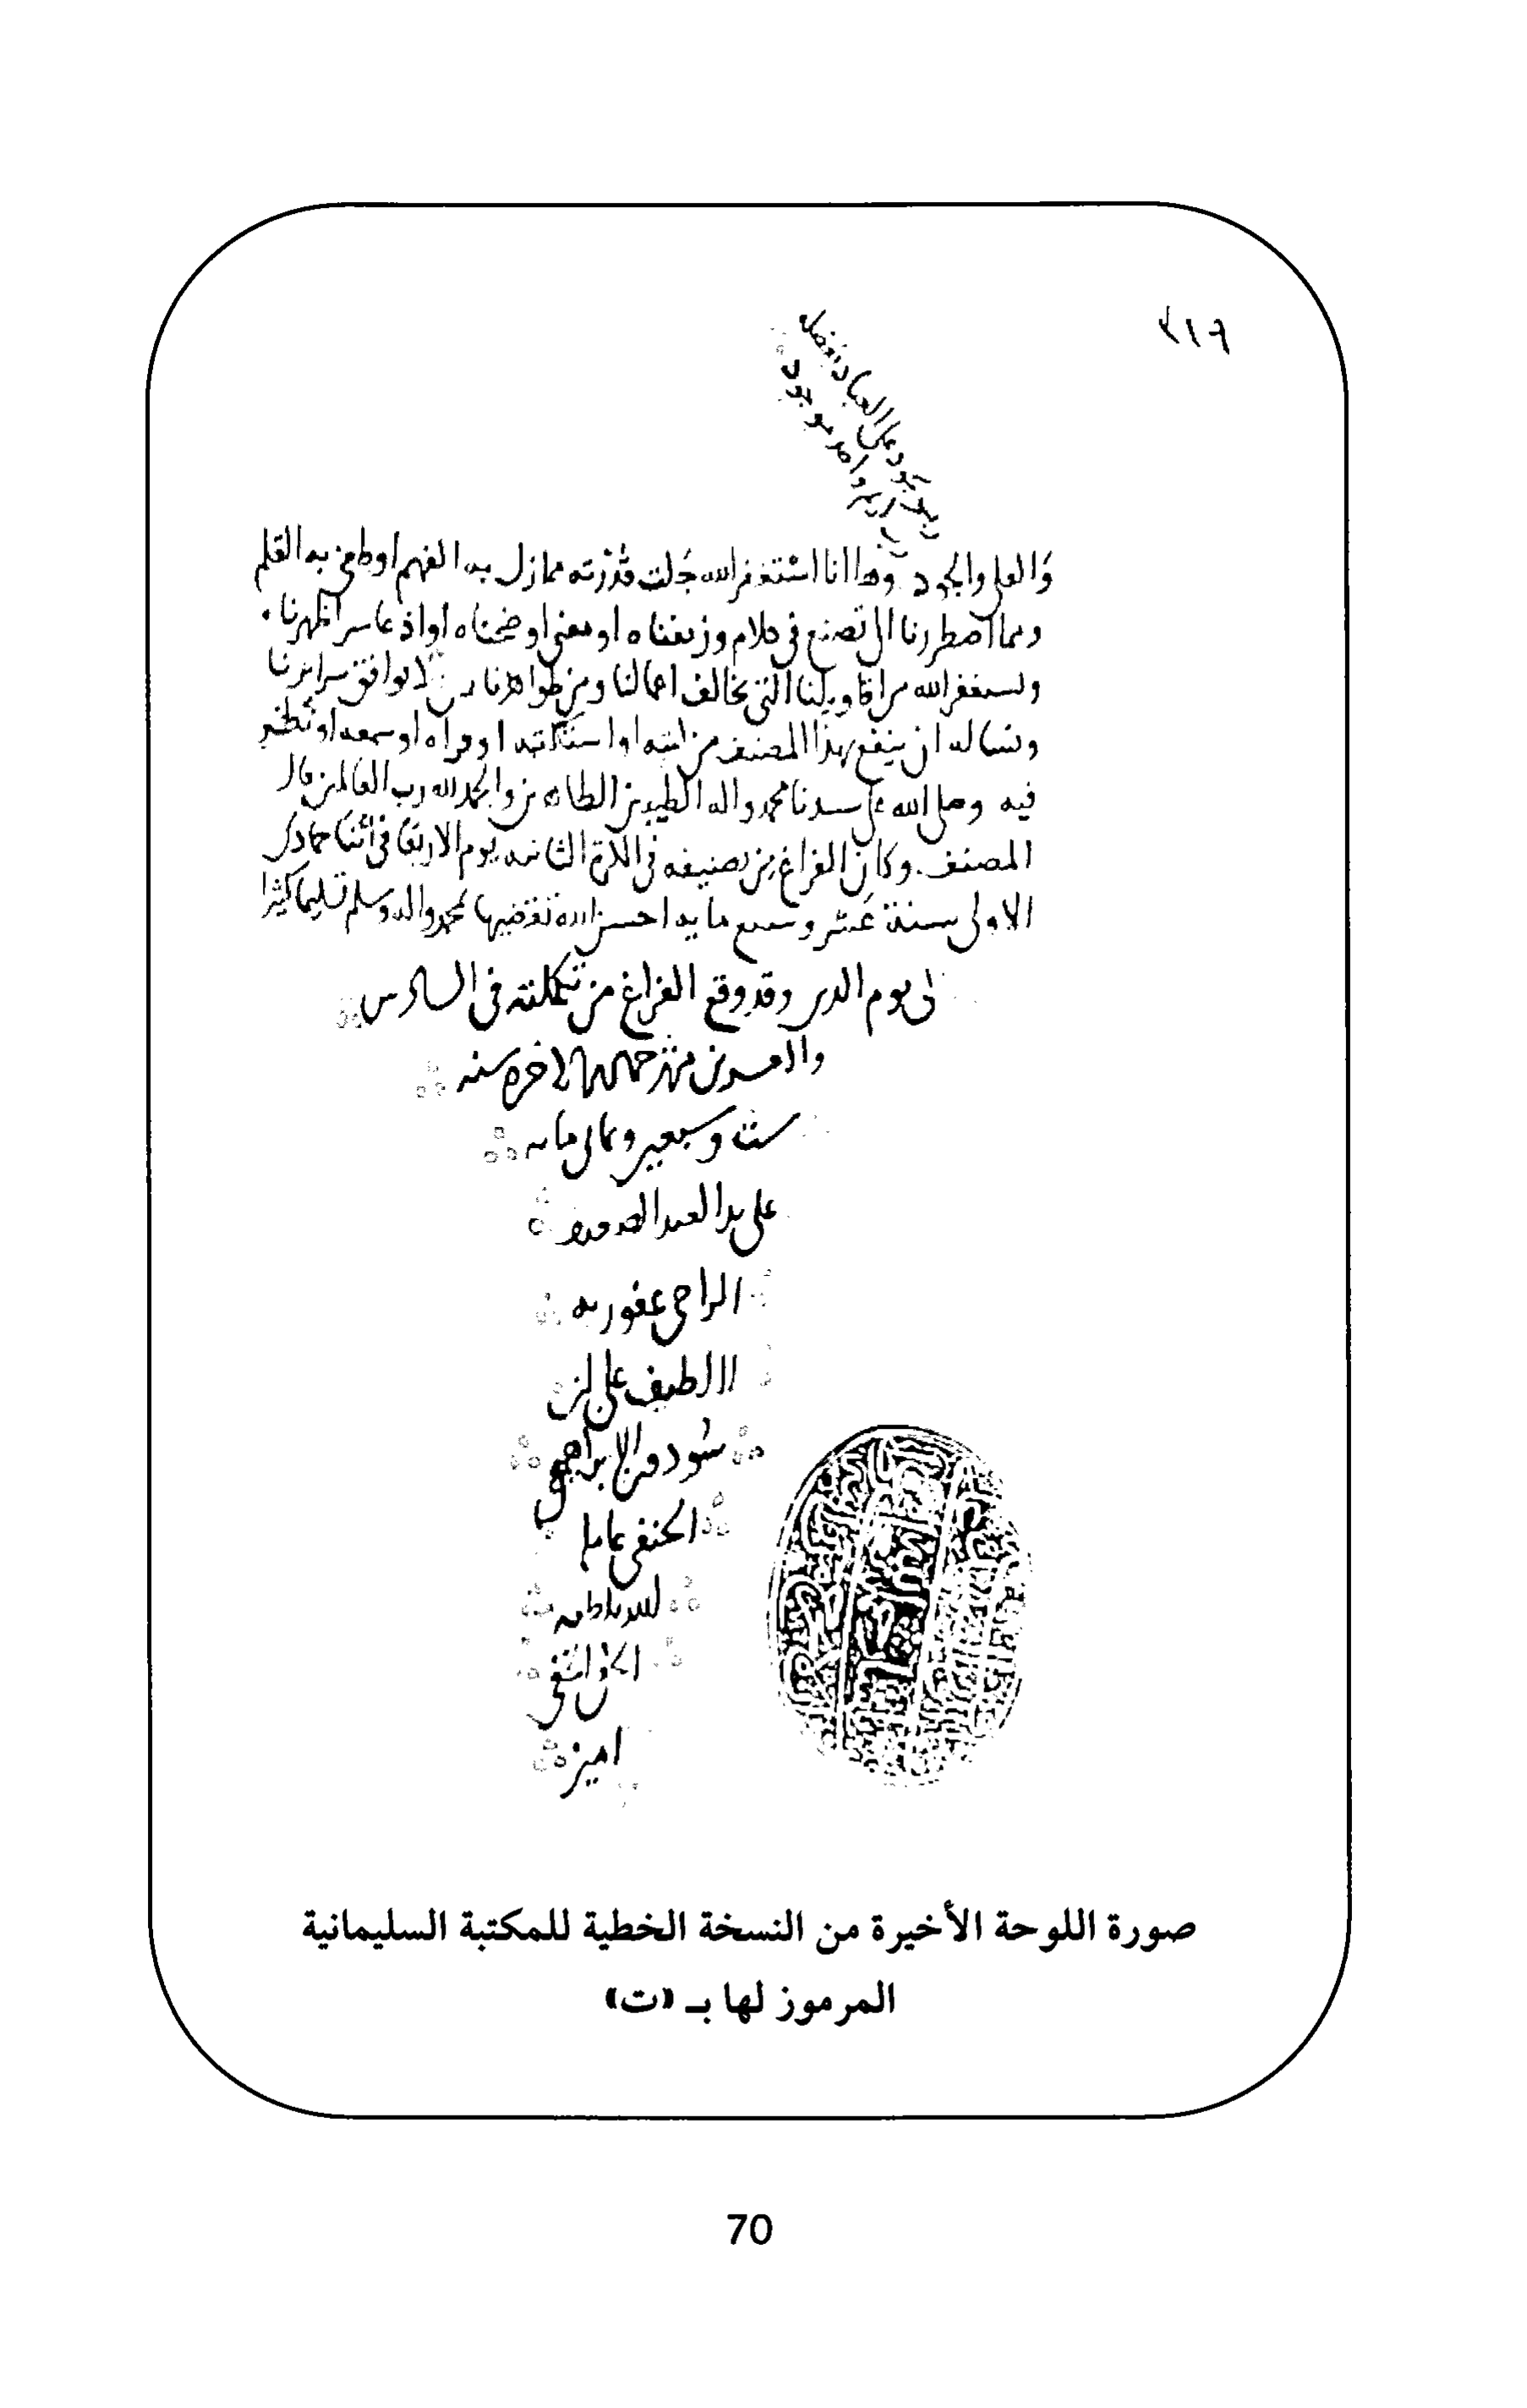 ٣١٩
والعلم والجود وها انا استغفر الله جلت قدرته مما زل به الفهم او طغى به القلم
ومما اضطررنا الى تصنع في كلام وزيفناه او معنى اوضحناه او اذعا سر اظهرنا
ونستغفر الله من اقاويلنا التي تخالف اعمالنا ومن ظواهرنا لا توافق سرائرنا
ونساله ان ينفع بهذا المصنف من او استكتبه او قراه او سمعه او نظر
فيه وصلى الله على سيدنا محمد واله الطيبين الطاهرين والحمد لله رب العالمين قال
المصنف وكان الفراغ من تصنيفه في الكرة الثانيه يوم الاربعا في اثنا جمادى
الاولى سنة عشر وسبع مايه احسن الله تقضيها بمحمد واله وسلم تسليما كثيرا
الى يوم الدين وقد وقع الفراغ من تكملته في السادس
والعسرين من شهر جمادى الاخره سنه
ست وسبعين وثمانى مايه
على يد العبد
الراجى عفو ربه
اللطيف على بن
سودون الابراهيمى
الحنفى عامله

الخفى
امين
صورة اللوحة الأخيرة من النسخة الخطية للمكتبة السليمانية
المرموز لها بـ «ت»
70